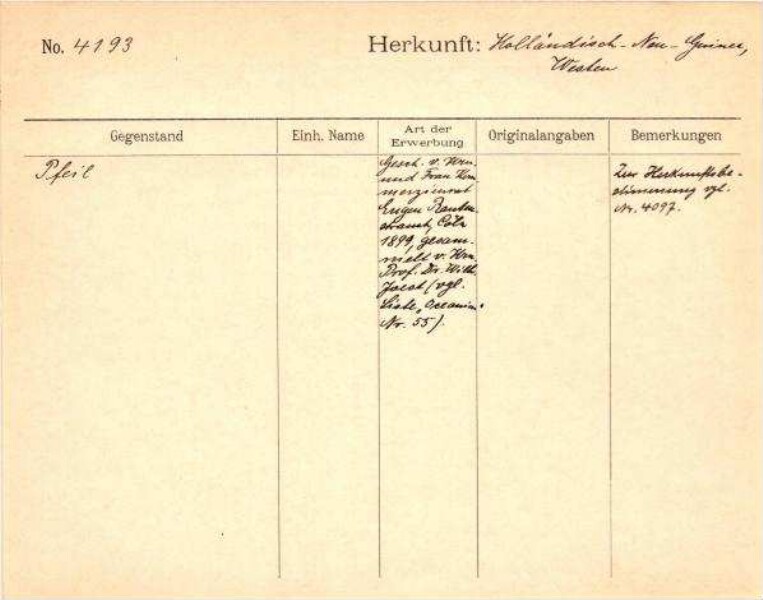 No. 4193
Herkunft: Holländisch-Neu-Guinea,
Westen
Gegenstand
Einh. Name
Art der
Erwerbung
Originalangaben
Bemerkungen
Pfeil
Gesch. v. Hrn.
und Frau Kom-
merzienrat
Eugen Rauten-
strauch, Cöln
1899, gesam-
melt v. Hrn.
Prof. Dr. Wilh.
Joest (vgl.
Liste „Oceanien"
Nr. 55).
Zur Herkunftsbe-
stimmung vgl.
Nr. 4097.